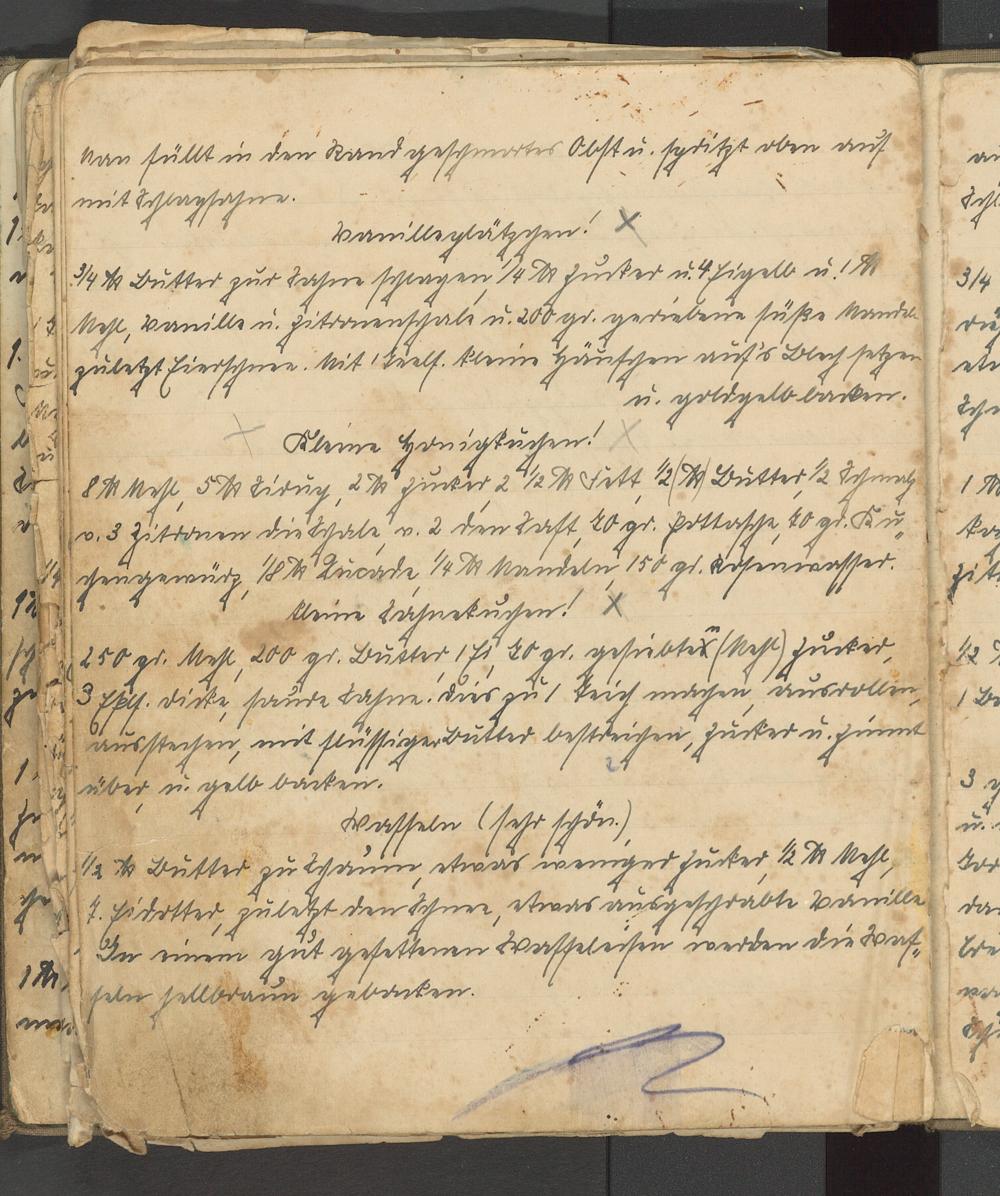 Man füllt in den Rand geschmortes Obst u. spritzt oben auf
mit Schlagsahne.
Vanilleplätzchen! X
3/4 ℔ Butter zur Sahne schlagen, 1/4 ℔ Zucker u. 4 Eigelb u. 1 ℔
Mehl, Vanille u. Zitronenschale u. 200 gr. geriebene süße Mandeln
zuletzt Eierschnee. Mit 1 Teelf. kleine Häufchen auf's Blech setzen
u. goldgelb backen.
X Kleine Honigkuchen! X
8 ℔ Mehl, 5 ℔ Sirup, 2 ℔ Zucker 2 1/2 ℔ Fett, 1/2 (℔) Butter, 1/2 Schmalz
v. 3 Zitronen die Schale, v. 2 den Saft, 20 gr. Pottasche, 20 gr. Ku
chengewürz, 1/8 ℔ Sucade, 1/4 ℔ Mandeln, 150 gr. Rosenwasser.
Kleine Sahnekuchen! X
250 gr. Mehl, 200 gr. Butter, 1 Ei, 20 gr. gesiebten (Mehl) Zucker,
3 Eßlf. dicke, saure Sahne. Dies zu 1 Teich machen, ausrollen,
ausstechen, mit flüssiger Butter bestreichen, Zucker u. Zimmt
über, u. gelb backen.
Waffeln (sehr schön.)
1/2 ℔ Butter zu Schaum, etwas weniger Zucker, 1/2 ℔ Mehl,
7. Eidotter, zuletzt den Schnee, etwas ausgeschrabte Vanille
In einem gut gefettenen Waffeleisen werden die Waf-
feln hellbraun gebacken.